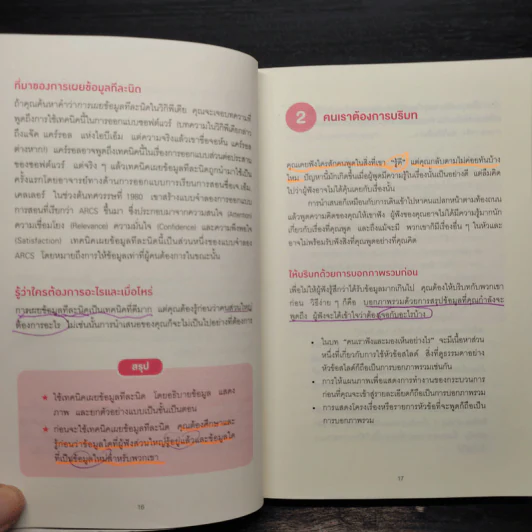 ที่มาของการเผยข้อมูลทีละนิด
ถ้าคุณค้นหาคำว่าการเผยข้อมูลทีละนิดในวิกิพีเดีย คุณจะเจอบทความที่
พูดถึงการใช้เทคนิคนี้ในการออกแบบซอฟต์แวร์ (บทความในวิกิพีเดียกล่าว
ถึงแจ๊ด แคร์รอล แห่งไอบีเอ็ม แต่ความจริงแล้วเขาชื่อจอห์น แคร์รอล
ต่างหาก!) แคร์รอลอาจพูดถึงเทคนิคนี้ในเรื่องการออกแบบส่วนต่อประสาน
ของซอฟต์แวร์ แต่จริง ๆ แล้วเทคนิคเผยข้อมูลทีละนิดถูกนำมาใช้เป็น
ครั้งแรกโดยอาจารย์ทางด้านการออกแบบการเรียนการสอนชื่อเจ.เอ็ม.
เคลเลอร์ ในช่วงต้นทศวรรษที่ 1980 เขาสร้างแบบจำลองการออกแบบ
การสอนที่เรียกว่า ARCS ขึ้นมา ซึ่งประกอบจากความสนใจ (Attention)
ความเชื่อมโยง (Relevance) ความมั่นใจ (Confidence) และความพึงพอใจ
(Satisfaction) เทคนิคเผยข้อมูลทีละนิดนี้เป็นส่วนหนึ่งของแบบจำลอง
ARCS โดยหมายถึงการให้ข้อมูลเท่าที่ผู้คนต้องการในขณะนั้น
รู้ว่าใครต้องการอะไรและเมื่อไหร่
การเผยข้อมูลทีละนิดเป็นเทคนิคที่ดีมาก แต่คุณต้องรู้ก่อนว่าคนส่วนใหญ่
ต้องการอะไร ไม่เช่นนั้นการนำเสนอของคุณก็จะไม่เป็นไปอย่างที่ต้องการ
สรุป
★ ใช้เทคนิคเผยข้อมูลทีละนิด โดยอธิบายข้อมูล แสดง
ภาพ และยกตัวอย่างแบบเป็นขั้นเป็นตอน
★ ก่อนจะใช้เทคนิคเผยข้อมูลทีละนิด คุณต้องศึกษาและ
รู้ก่อนว่าข้อมูลใดที่ผู้ฟังส่วนใหญ่รู้อยู่แล้วและข้อมูลใด
ที่เป็นข้อมูลใหม่สำหรับพวกเขา
16
2 คนเราต้องการบริบท
คุณเคยฟังใครสักคนพูดในสิ่งที่เขา "รู้ดี" แต่คุณกลับตามไม่ค่อยทันบ้าง
ไหม ปัญหานี้มักเกิดขึ้นเมื่อผู้พูดมีความรู้ในเรื่องนั้นเป็นอย่างดี แต่ลืมคิด
ไปว่าผู้ฟังอาจไม่ได้คุ้นเคยกับเรื่องนั้น
การนำเสนอก็เหมือนกับการเดินเข้าไปหาคนแปลกหน้าตามท้องถนน
แล้วพูดความคิดของคุณให้เขาฟัง ผู้ฟังของคุณอาจไม่ได้มีความรู้มากนัก
เกี่ยวกับเรื่องที่คุณพูด และถึงแม้จะมี พวกเขาก็มีเรื่องอื่น ๆ ในหัวและ
อาจไม่พร้อมรับฟังสิ่งที่คุณพูดอย่างที่คุณคิด
ให้บริบทด้วยการบอกภาพรวมก่อน
เพื่อไม่ให้ผู้ฟังรู้สึกว่าได้รับข้อมูลมากเกินไป คุณต้องให้บริบทกับพวกเขา
ก่อน วิธีง่าย ๆ ก็คือ บอกภาพรวมด้วยการสรุปข้อมูลที่คุณกำลังจะ
พูดถึง ผู้ฟังจะได้เข้าใจว่าต้องเจอกับอะไรบ้าง
• ในบท "คนเราฟังและมองเห็นอย่างไร" จะมีเนื้อหาส่วน
หนึ่งที่เกี่ยวกับการใช้หัวข้อสไลด์ สิ่งที่ดูธรรมดาอย่าง
หัวข้อสไลด์ก็ถือเป็นการบอกภาพรวมเช่นกัน
• การให้แผนภาพเพื่อแสดงการทำงานของกระบวนการ
ก่อนที่คุณจะเข้าสู่รายละเอียดก็ถือเป็นการบอกภาพรวม
• การแสดงโครงเรื่องหรือรายการหัวข้อที่จะพูดก็ถือเป็น
การบอกภาพรวม
17